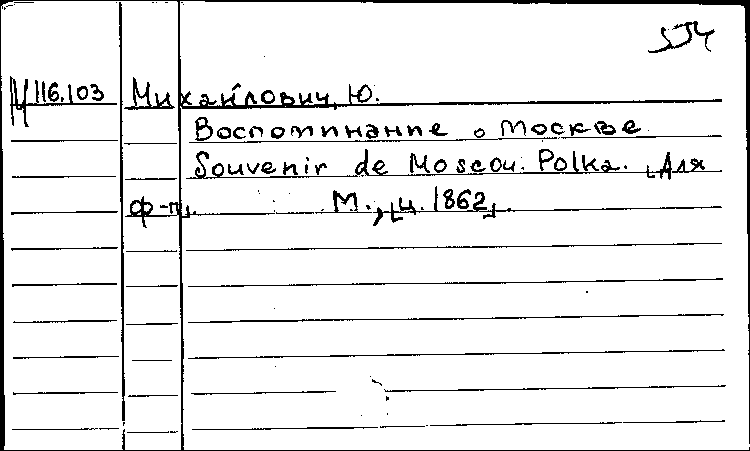 М 116.103 Михайлович, Ю.
Воспоминание о Москве
Souvenir de Moscou. Polka. [Для
ф-п].
М., [ц. 1862].